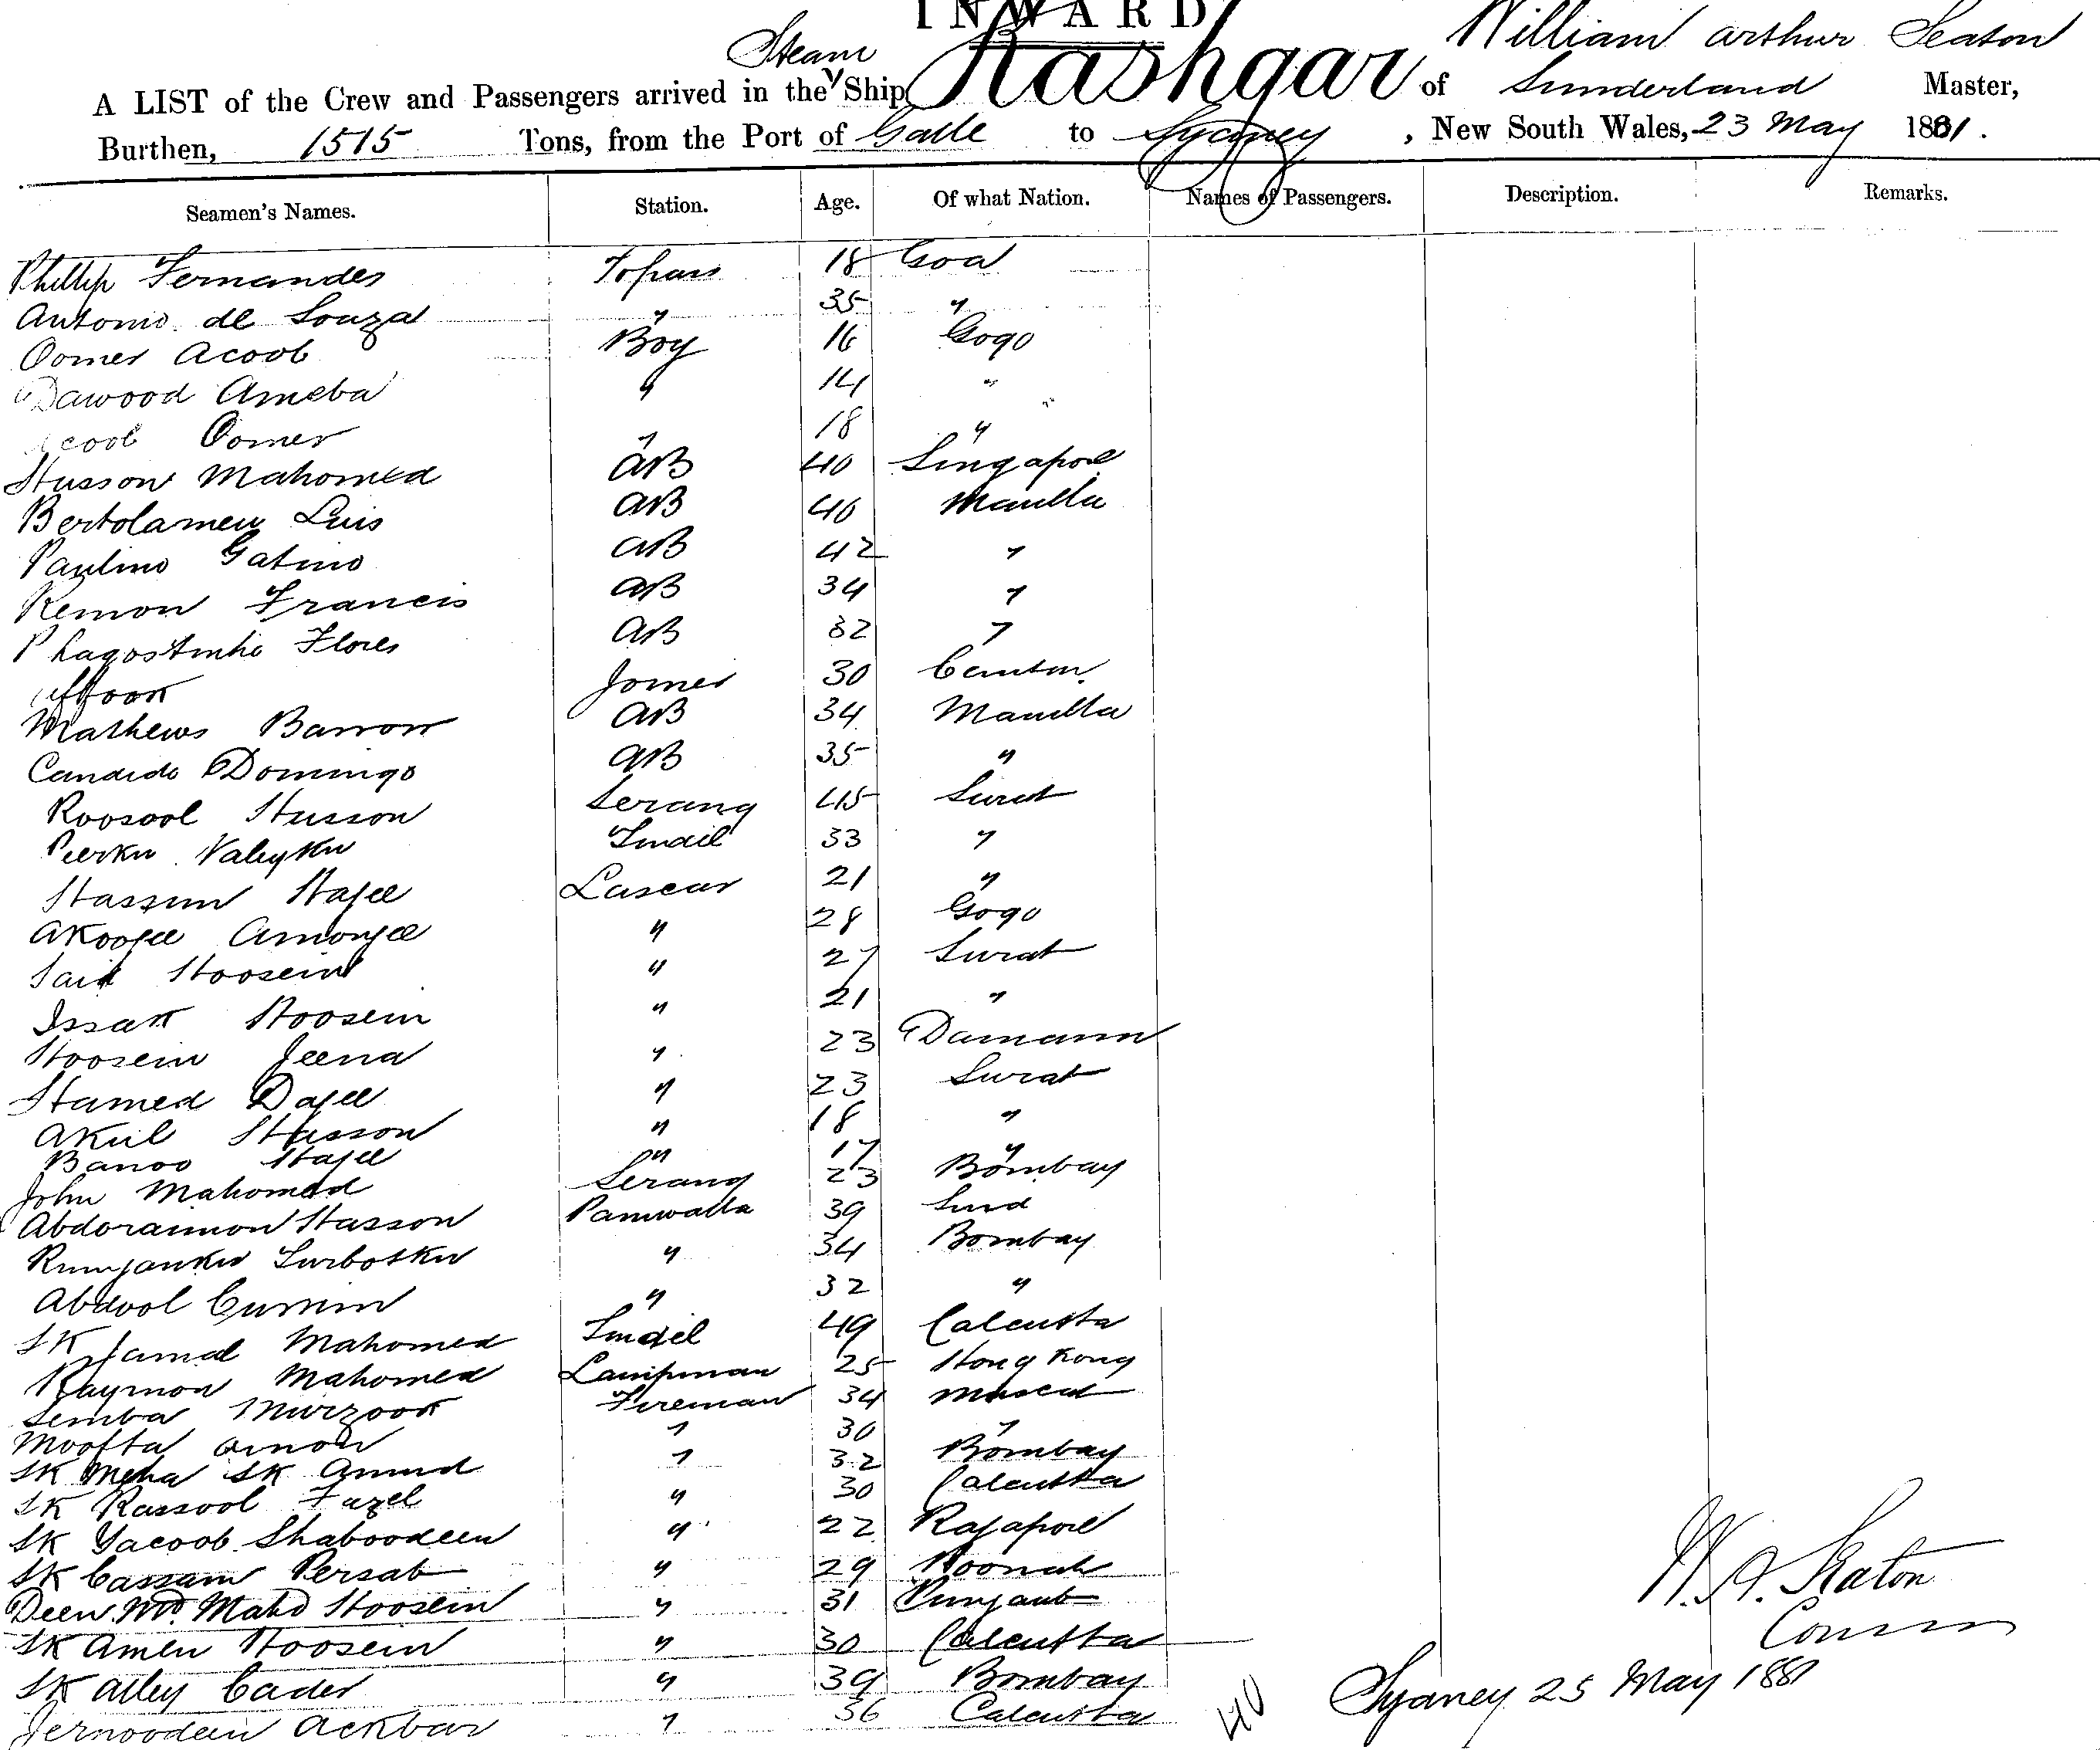 INWARD
Steam William Arthur Seaton
A LIST of the Crew and Passengers arrived in the Ship Kashgar of Sunderland Master,
Burthen, 1515 Tons, from the Port of Galle to Sydney, New South Wales, 23 May 1881.
Seamen's Names. Station. Age. Of what Nation. Names of Passengers. Description. Remarks.
Phillip Fernandes Topass 18 Goa
Antonio de Souza " 35 "
Oomer Acoob Boy 16 Gogo
Dawood Ameba " 14 "
Acoob Oomer " 18 "
Husson Mahomed AB 40 Singapore
Bertolameu Luis AB 40 Manilla
Paulino Gatino AB 42 "
Remon Francis AB 34 "
Flores AB 32 "
Joiner 30 Canton
Mathews Barron AB 34 Manilla
Candido Domingo AB 35 "
Roosool Husson Serang 45 Surat
Peerku Valeyku Tindil 33 "
Hassun Hajee Lascar 21 "
Akoojee Amonjee " 28 Gogo
Said Hoosein " 27 Surat
Issak Hoosein " 21 "
Hoosein Jeena " 23 Damann
Hamed Dajee " 23 Surat
Akul Hasson " 18 "
Banoo Hajee " 17 "
John Mahomed Serang 23 Bombay
Abdoraimon Hasson Paniwalla 39 Sind
Rumjanku Surbotku " 34 Bombay
Abdool Currim " 32 "
SK Jamal Mahomed Tindel 49 Calcutta
Raymon Mahomed Lampman 25 Hong Kong
Semba Murzook Fireman 34 Muscat
Moofta Amon " 30 "
SK Meha SK Amud " 32 Bombay
SK Rassool Fazel " 30 Calcutta
SK Yacoob Shaboodeen " 22 Rajapore
SK Cassam Persab " 29 Poonah
Deen Md. Mahd Hoosein " 31 Punjaub
SK Amen Hoosein " 30 Calcutta
SK Alley Cader " 39 Bombay
Jernoodeen Ackbar " 36 Calcutta
40
W. A. Seaton
Sydney 25 May 1881